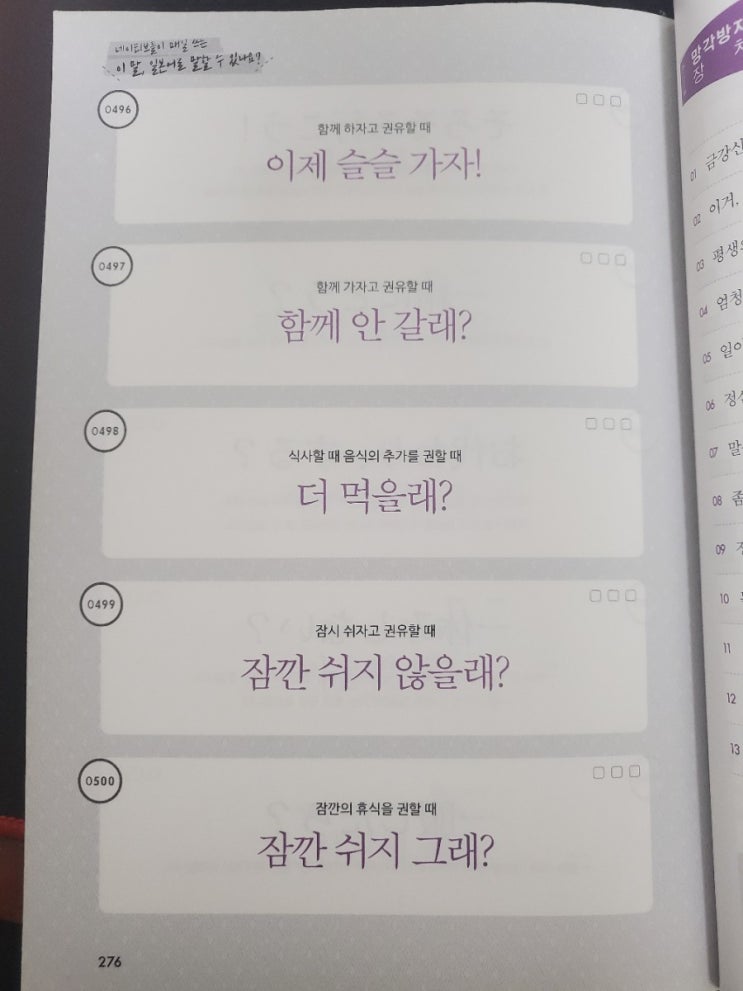 네이티브들이 매일 쓰는
이 말, 일본어로 말할 수 있나요?
0496
함께 하자고 권유할 때
이제 슬슬 가자!
0497
함께 가자고 권유할 때
함께 안 갈래?
0498
식사할 때 음식의 추가를 권할 때
더 먹을래?
0499
잠시 쉬자고 권유할 때
잠깐 쉬지 않을래?
0500
잠깐의 휴식을 권할 때
잠깐 쉬지 그래?
276
망각방지
장 치
01 금강산
02 이거,
03 평생
04 엄청
05 일이
06 정신
07 말
08 좀
09
10
11
12
13